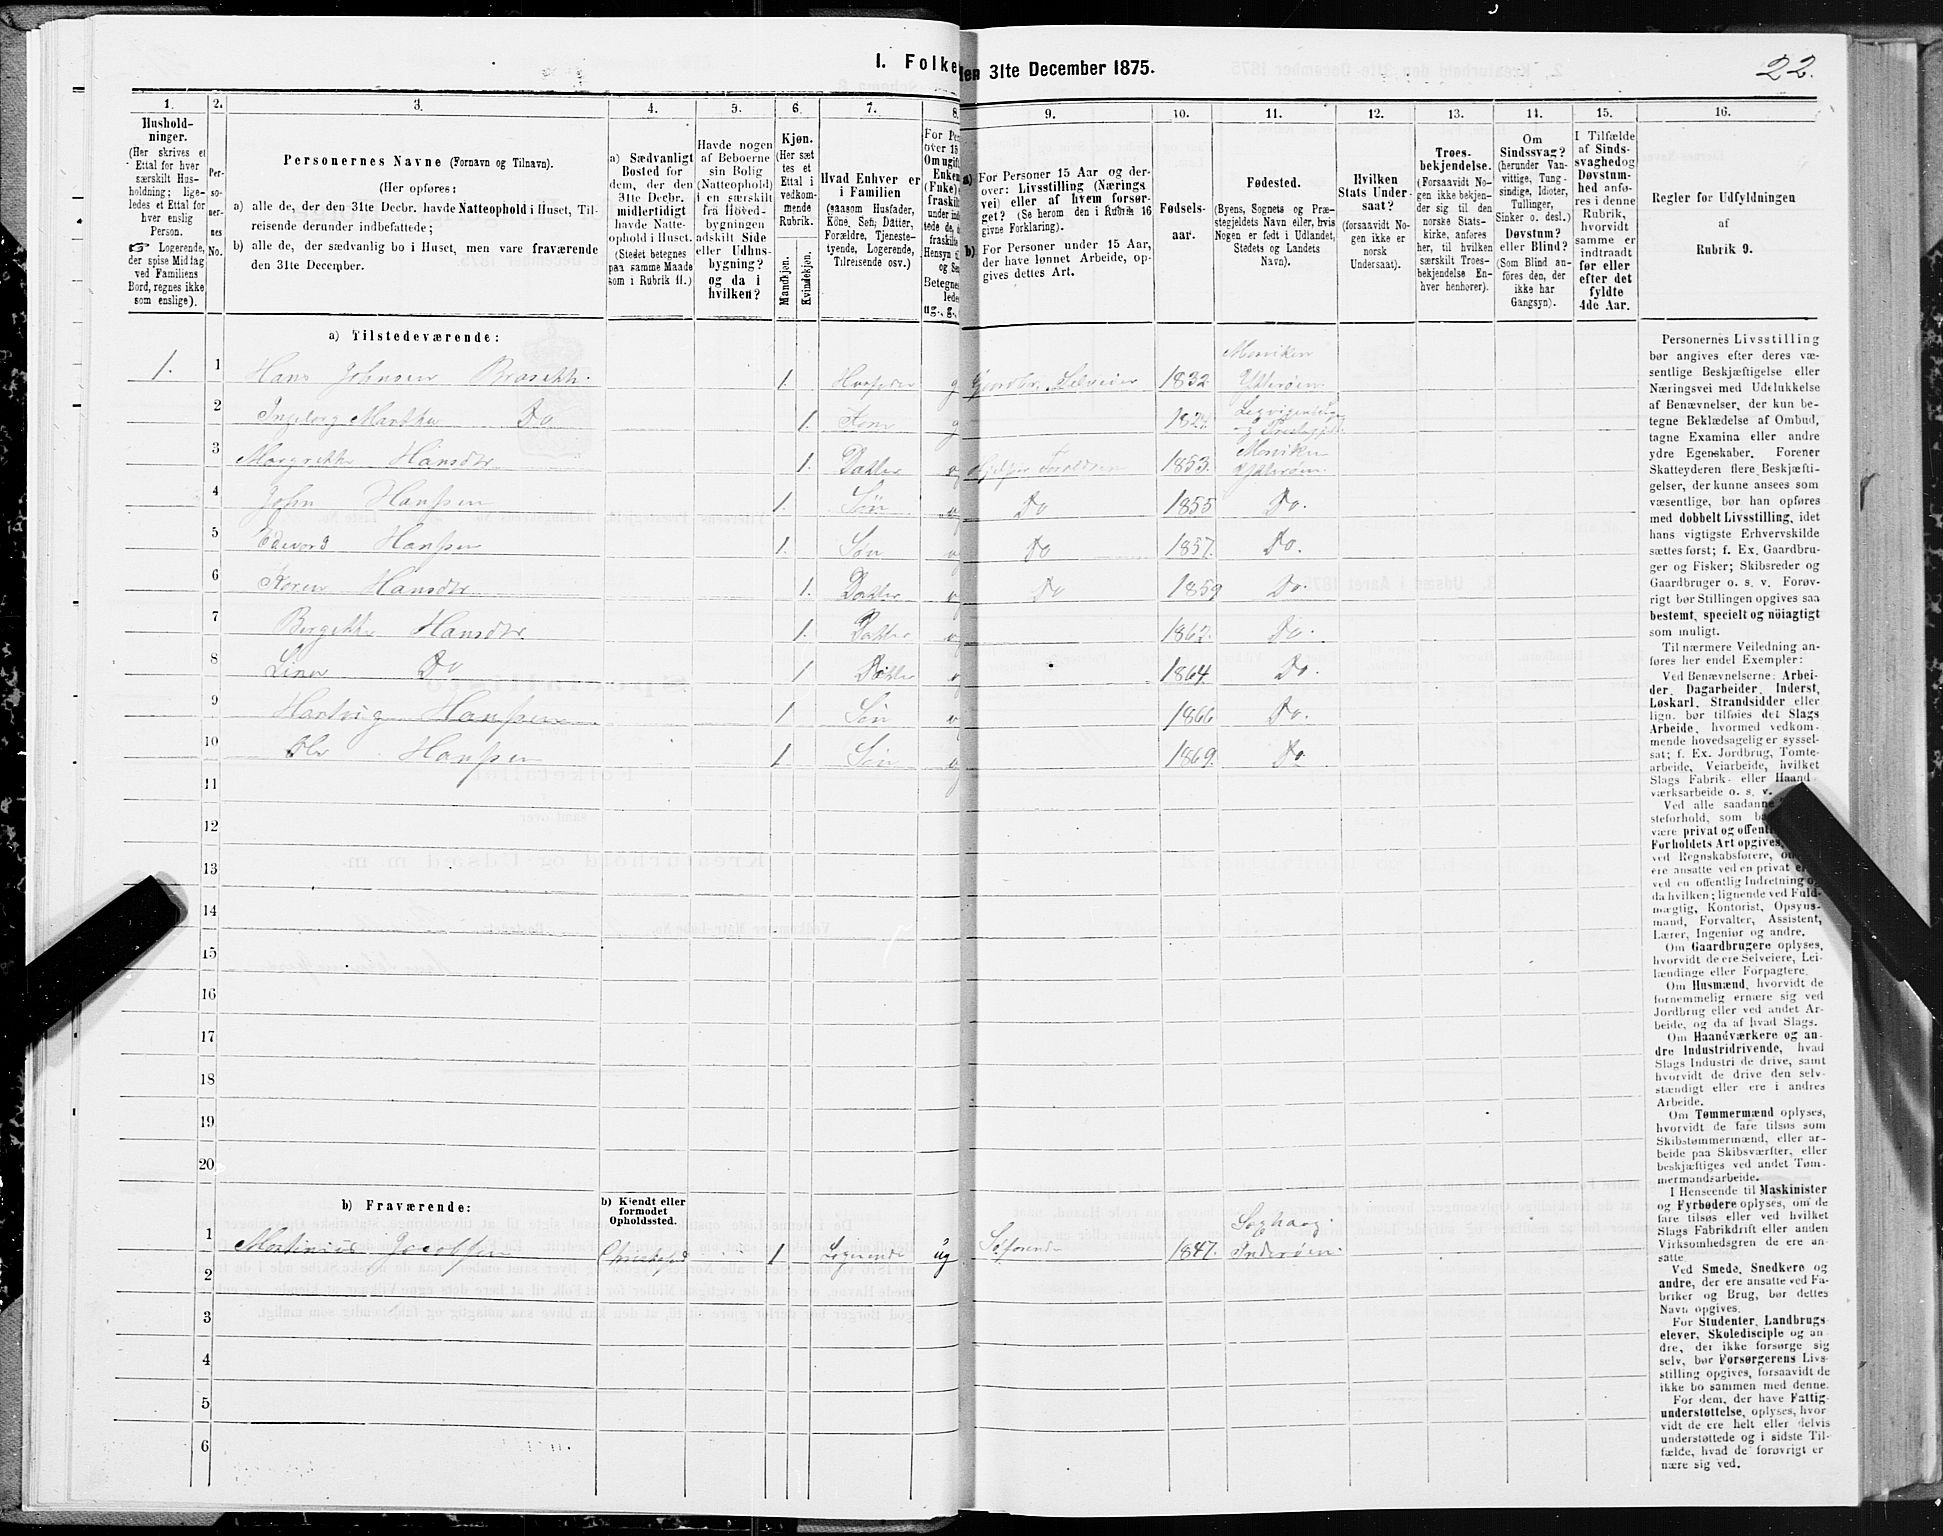 I. Folke
den 31te December 1875.
22.
1.
2.
3.
4.
5.
6.
7.
8.
9.
10.
11.
12.
13.
14.
15.
16.
Hushold-
ninger.
(Her skrives et
Ettal for hver
særskilt Hus-
holdning; lige-
ledes et Ettal for
hver enslig
Person.
☞ Logerende,
der spise Middag
ved Familiens
Bord, regnes ikke
som enslige).
Per-
so-
ner-
nes
No.
Personernes Navne (Fornavn og Tilnavn).
(Her opføres:
a) alle de, der den 31te Decbr. havde Natteophold i Huset, Til-
reisende derunder indbefattede;
b) alle de, der sædvanlig bo i Huset, men vare fraværende
den 31te December.
a) Sædvanligt
Bosted for
dem, der den
31te Decbr.
midlertidigt
havde Natte-
ophold i Huset.
(Stedet betegnes
paa samme Maade
som i Rubrik 11.)
Havde nogen
af Beboerne
sin Bolig
(Natteophold)
i en særskilt
fra Hoved-
bygningen
adskilt Side
eller Udhus-
bygning?
og da i
hvilken?
Kjøn.
(Her sæt
tes et
Ettal i
vedkom-
mende
Rubrik.
Mandkjøn.
Kvindekjøn.
Hvad Enhver er
i Familien
(saasom Husfader,
Kone, Søn, Datter,
Forældre, Tjeneste-
tyende, Logerende,
Tilreisende osv.)
For Pe
over 15
Om ugift
Enken
(Fuke),
fraskilt
under ind
tede de,
fraskilte
Hensyn t
og Se
Betegne
lede
ug., g.,
a) For Personer 15 Aar og der-
over: Livsstilling (Nærings
vei) eller af hvem forsør-
get? (Se herom den i Rubrik 16
givne Forklaring).
b) For Personer under 15 Aar,
der have lønnet Arbeide, op-
gives dettes Art.
Fødsels-
aar.
Fødested.
(Byens, Sognets og Præ-
stegjeldets Navn eller, hvis
Nogen er født i Udlandet,
Stedets og Landets
Navn).
Hvilken
Stats Under-
saat?
(forsaavidt No-
gen ikke er
norsk
Undersaat).
Troes-
bekjendelse.
(Forsaavidt No-
gen ikke bekjen-
der sig til den
norske Stats-
kirke, anføres
her, til hvilken
særskilt Troes-
bekjendelse En-
hver henhører).
Om
Sindssvag?
(herunder Van-
vittige, Tung-
sindige, Idioter,
Tullinger,
Sinker o. desl.)
Døvstum?
eller Blind?
(Som Blind an-
føres den, der
ikke har
Gangsyn).
I Tilfælde
af Sinds-
svaghed og
Døvstum-
hed anfø-
res i denne
Rubrik,
hvorvidt
samme er
indtraadt
før eller
efter det
fyldte
4de Aar.
Regler for Udfyldningen
af
Rubrik 9.
a) Tilstedeværende:
1. 1 Hans Johnsen 1. g Selveier 1832 Ytterøen.
2 Ingeborg Martha Do 1. Kone g
3 Hansdtr 1. Datter 1853. Ytterøen.
4 John Hanssen 1. Søn Do 1855 Do.
5 Edvard Hanssen 1. Søn Do 1857. Do.
6 Karen Hansdtr 1. Datter Do 1859 Do.
7 Hansdtr 1. Datter 1862. Do.
8 Do 1 Datter 1864. Do.
9 Hartvig Hanssen 1 Søn 1866 Do.
10 Ole Hanssen 1 Søn 1869. Do
11
12
13
14
15
16
17
18
19
20
b) Fraværende:
b) Kjendt eller
formodet
Opholdssted.
1 Martinius Jacobsen 1 Logerende ug Søfarende 1847. Inderøen.
2
3
4
5
6
Personernes Livsstilling
bør angives efter deres væ-
sentlige Beskjæftigelse eller
Næringsvei med Udelukkelse
af Benævnelser, der kun be-
tegne Beklædelse af Ombud,
tagne Examina eller andre
ydre Egenskaber. Forener
Skatteyderen flere Beskjæfti-
gelser, der kunne ansees som
væsentlige, bør han opføres
med dobbelt Livsstilling, idet
hans vigtigste Erhvervskilde
sættes først; f. Ex. Gaardbru-
ger og Fisker; Skibsreder og
Gaardbruger o. s. v. Forøv-
rigt bør Stillingen opgives saa
bestemt, specielt og nöiagtigt
som muligt.
Til nærmere Veiledning an-
føres her endel Exempler:
Ved Benævnelserne: Arbei-
der, Dagarbeider, Inderst,
Løskarl, Strandsidder eller
lign. bør tilføies det Slags
Arbeide, hvormed vedkom-
mende hovedsagelig er syssel-
sat; f. Ex. Jordbrug, Tomte-
arbeide, Veiarbeide, hvilket
Slags Fabrik- eller Haand-
værksarbeide o. s. v.
Ved alle saadanne
steforhold, som
være privat og offent
Forholdets Art opgives,
ved Regnskabsførere,
ere ansatte ved en privat
ved en offentlig Indretning og
da hvilken; lignende ved Fuld-
mægtig, Kontorist, Opsyns-
mand, Forvalter, Assistent,
Lærer, Ingeniør og andre.
Om Gaardbrugere oplyses,
hvorvidt de ere Selveiere, Lei-
lændinge eller Forpagtere.
Om Husmænd, hvorvidt de
fornemmelig ernære sig ved
Jordbrug eller ved andet Ar-
beide, og da af hvad Slags.
Om Haandværkere og an-
dre Industridrivende, hvad
Slags Industri de drive, samt
hvorvidt de drive den selv-
stændigt eller ere i andres
Arbeide.
Om Tømmermænd oplyses,
hvorvidt de fare tilsøs som
Skibstømmermænd, eller ar-
beide paa Skibsværfter, eller
beskjæftiges ved andet Tøm-
mermandsarbeide.
I Henseende til Maskinister
og Fyrbødere oplyses, om de
fare tilsøs eller ved hvilket
Fabrikdrift eller anden
Virksomhedsgren de ere an-
satte
Ved Smede, Snedkere og
andre, der ere ansatte ved Fa-
briker og Brug, bør dettes
Navn opgives.
For Studenter, Landbrugs-
elever, Skoledisciple og an-
dre, der ikke forsørge sig
selv, bør Forsørgerens Livs-
stilling opgives, forsaavidt de
ikke bo sammen med denne.
For dem, der have Fattig-
understøttelse, oplyses, hvor
vidt de ere helt eller delvis
understøttede og i sidste Til-
fælde, hvad de forøvrigt er
nære sig ved.